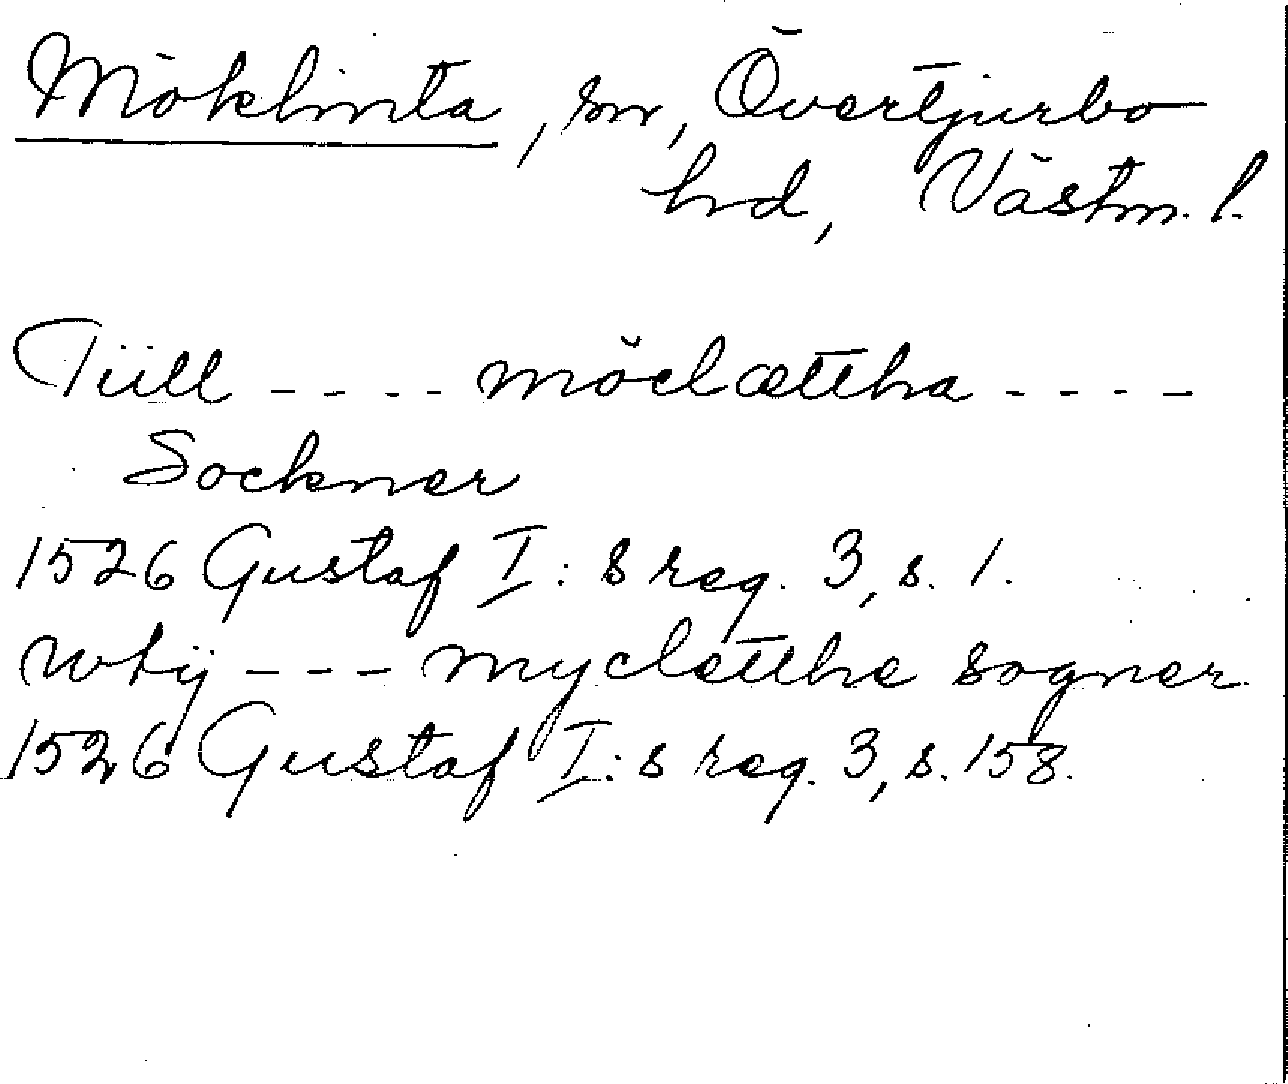 Möklinta, sn, Övertjurbo
hd, Västm. l.
Tiill ---- möclættha ----
Sockner
1526 Gustaf I:s reg. 3, s. 1.
wtij --- mycletthe sogner
1526 Gustaf I:s reg. 3, s. 158.